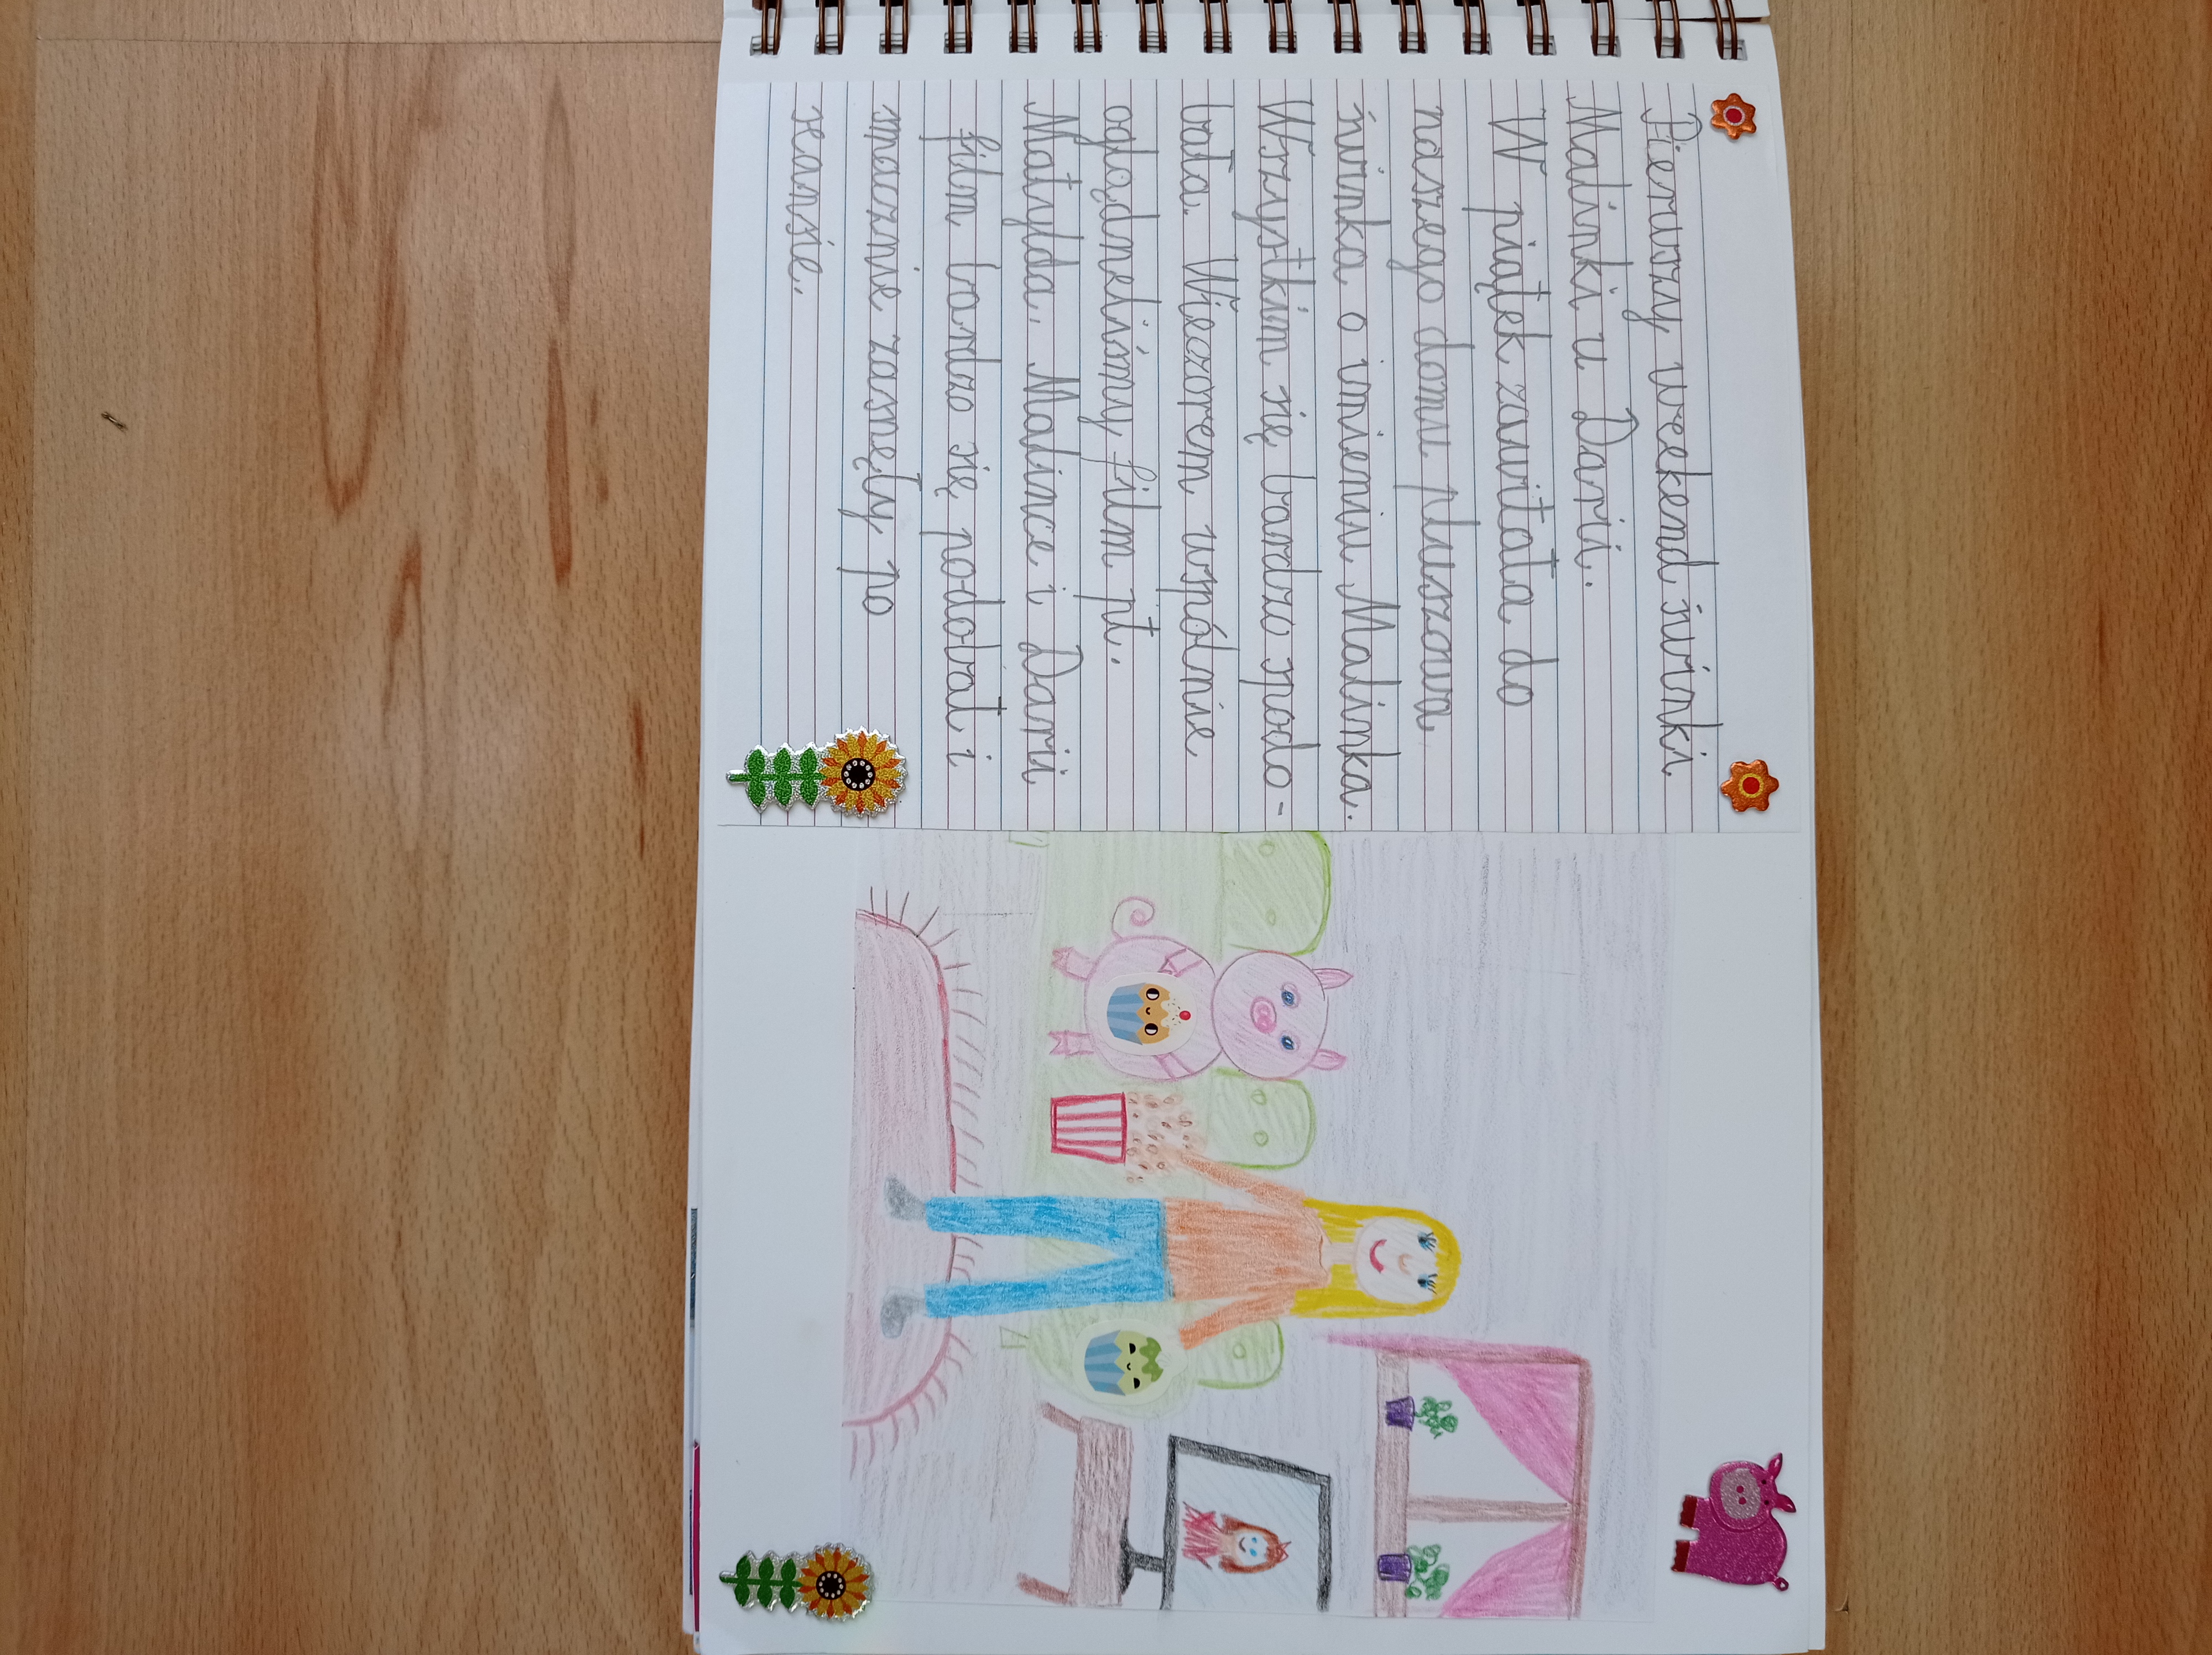 Pierwszy weekend świnki
Malinki u Darii.
W piątek zawitała do
naszego domu pluszowa
świnka o imieniu Malinka.
Wszystkim się bardzo spodo-
bała. Wieczorem wspólnie
oglądneliśmy film pt.
Matylda. Malince i Darii
film bardzo się podobał i
smacznie zasnęły po
seansie.